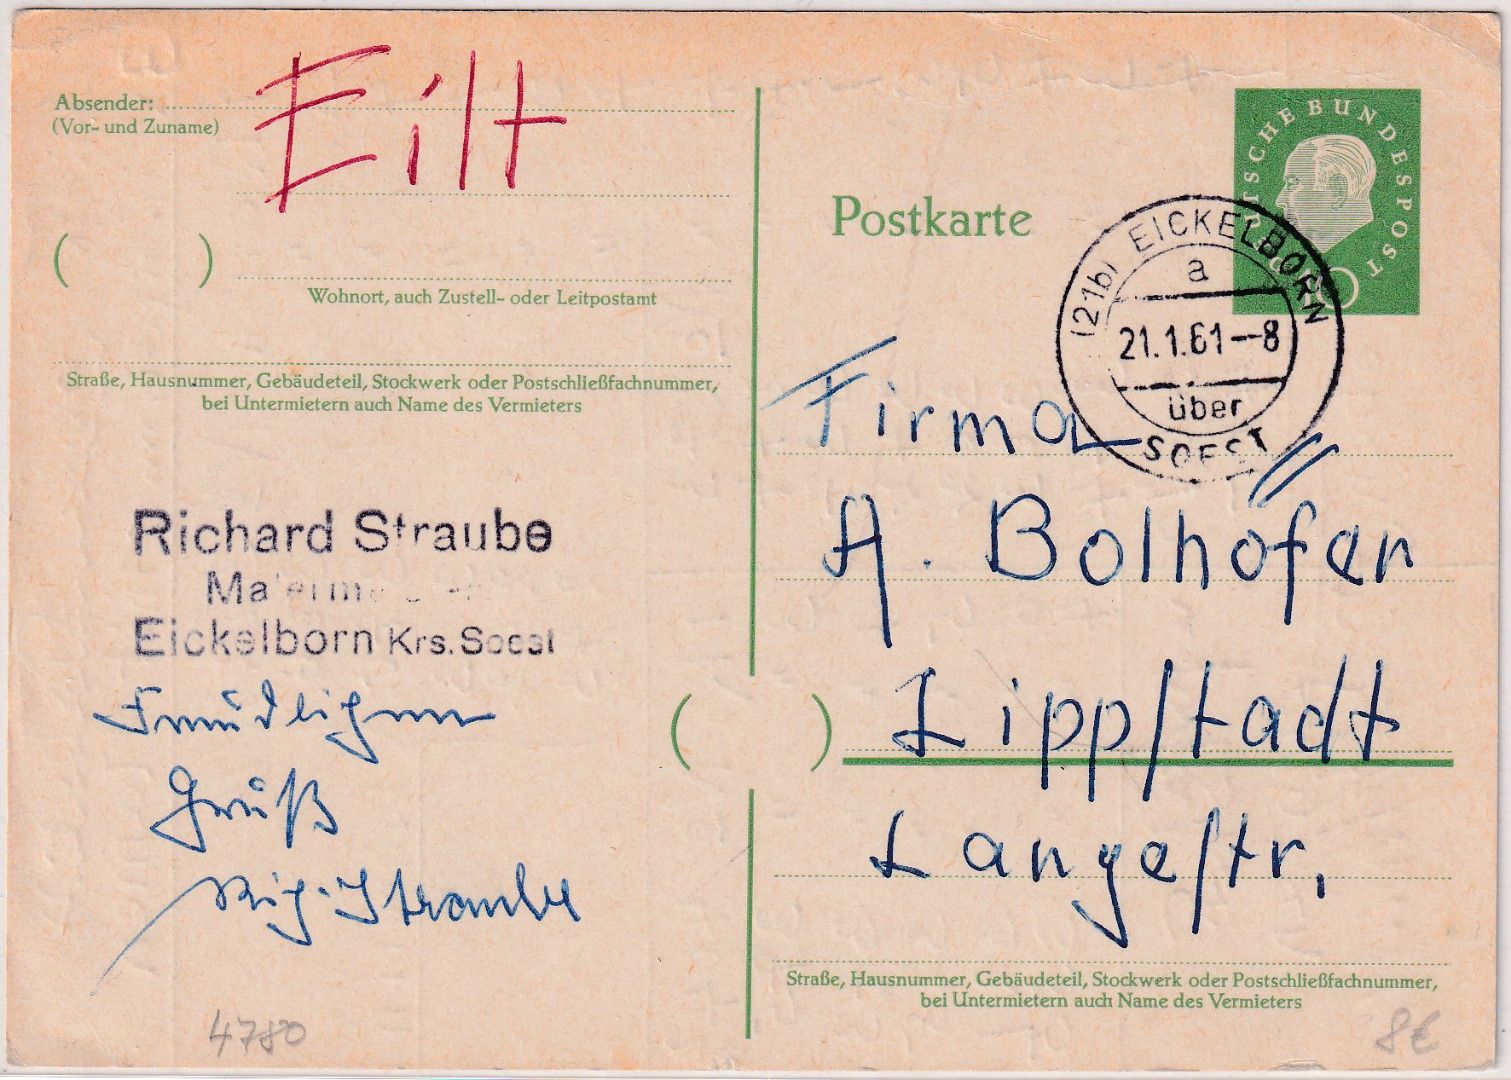 Eilt
Absender:
(Vor- und Zuname)
( )
Wohnort, auch Zustell- oder Leitpostamt
Straße, Hausnummer, Gebäudeteil, Stockwerk oder Postschließfachnummer,
bei Untermietern auch Name des Vermieters
Richard Straube
Eickelborn Krs. Soest
Freundlichen
Gruß
Rich. Straube
4780
DEUTSCHE BUNDESPOST
10
Postkarte
(21b) EICKELBORN
a
21.1.61--8
über
SOEST
Firma
A. Bolhöfer
( ) Lippstadt
Langestr.
Straße, Hausnummer, Gebäudeteil, Stockwerk oder Postschließfachnummer,
bei Untermietern auch Name des Vermieters
8€